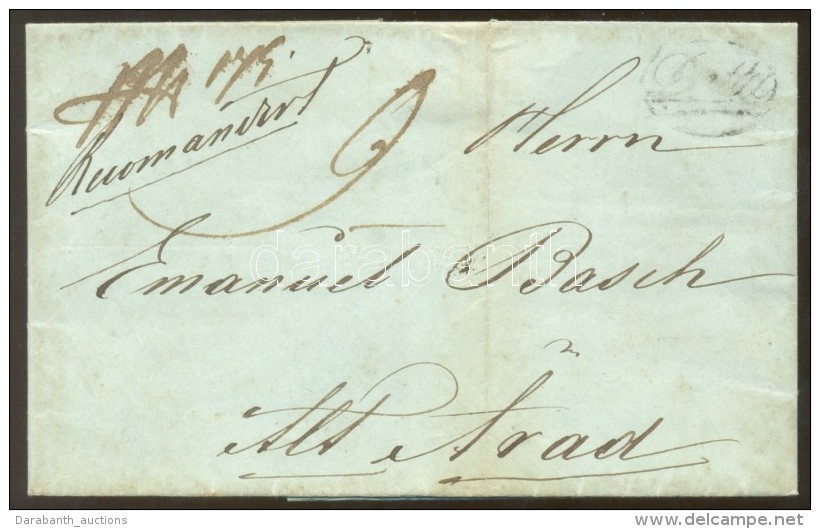 Recomandirt
9
Herrn
Emanuel Basch
Alt Arad
darabanth
Darabanth_auctions
delcampe.net